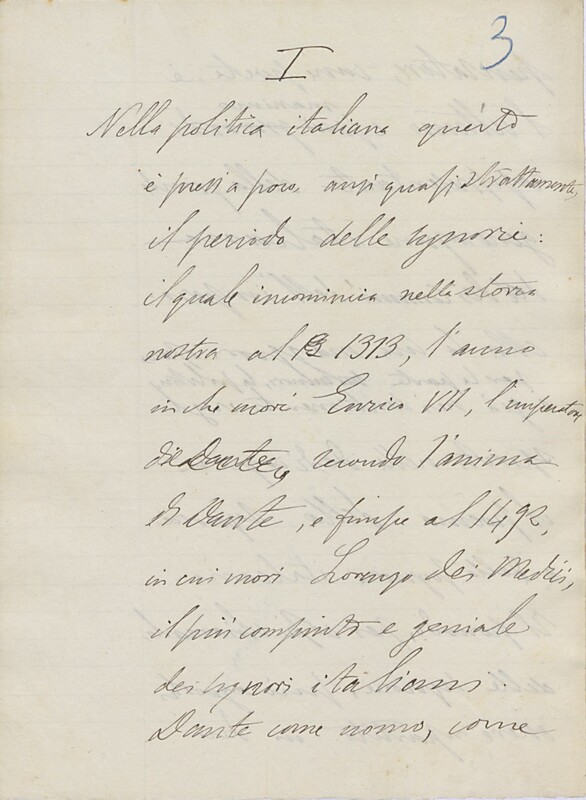 3
I
Nella politica italiana questo
è press a poco anzi quasi strettamente,
il periodo delle signorie:
il quale incomincia nella storia
nostra al 1313, l'anno
in che morì Enrico VII, l'imperatore
di Dante, secondo l'anima
di Dante, e finisce al 1492,
in cui morì Lorenzo dei Medici,
il più compiuto e geniale
dei signori italiani.
Dante come uomo, come